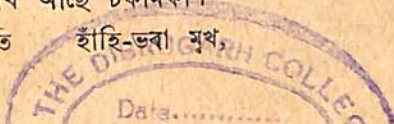 হাঁহি-ভৰা মুখ,
THE DIBRUGARH COLLE
Date..............